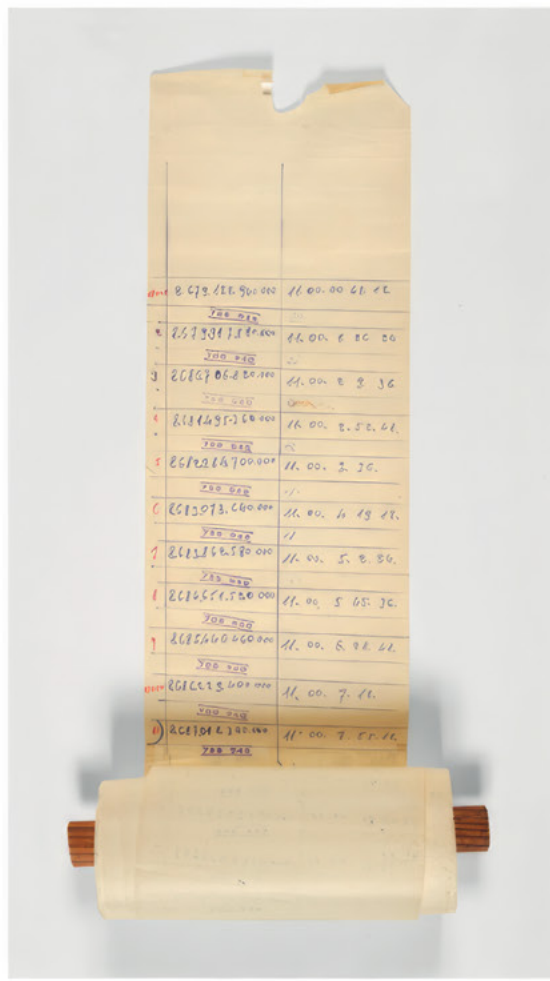 8.679.128.940.000 11.00.00.43.12
788 940
2 8679917880.000 11.00. 1 26 24
788 940
3 8680706.820.000 11.00. 2 9 36
788 940
4 8681495.760.000 11.00. 2.52.48.
788 940
5 8682284700.000 11.00. 3.36.
788 940
6 8683073.640.000 11.00. 4 19 12.
788 940
7 8683862.580.000 11.00. 5. 2. 24.
788 940
8 8684.651.520.000 11.00. 5 45. 36.
788 940
9 8685440460000 11.00. 6. 28. 48.
788 940
8686229400.000 11.00. 7. 12.
788 940
11 8687018340.000 11.00. 7.55.12.
788 940